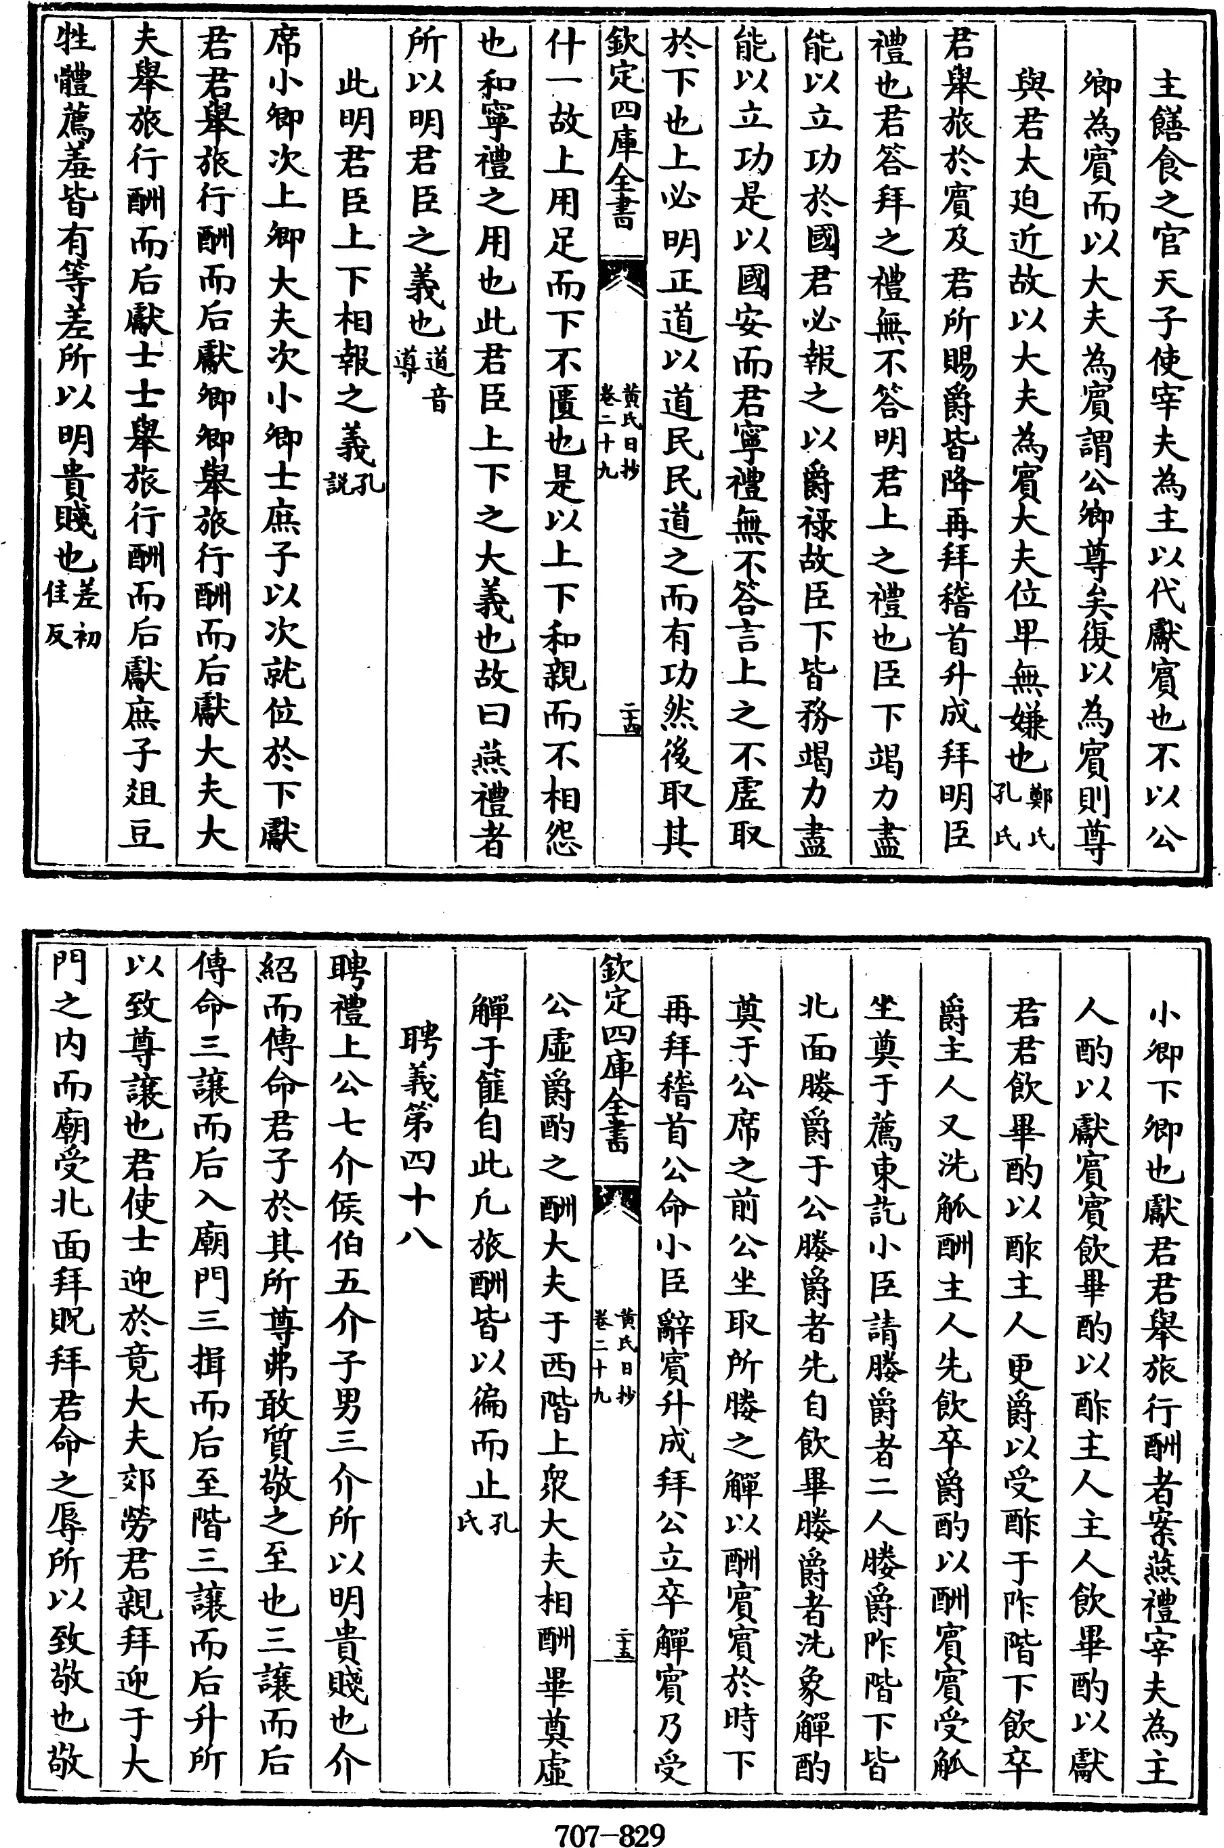 主饍食之官天子使宰夫為主以代獻賓也不以公
卿為賓而以大夫為賓謂公卿尊矣復以為賓則尊
與君太迫近故以大夫為賓大夫位卑無嫌也鄭氏孔氏
君舉旅於賓及君所賜爵皆降再拜稽首升成拜明臣
禮也君答拜之禮無不答明君上之禮也臣下竭力盡
能以立功於國君必報之以爵祿故臣下皆務竭力盡
能以立功是以國安而君寧禮無不答言上之不虛取
於下也上必明正道以道民民道之而有功然後取其
欽定四庫全書 黄氏日抄卷二十九 二十四
什一故上用足而下不匱也是以上下和親而不相怨
也和寧禮之用也此君臣上下之大義也故曰燕禮者
所以明君臣之義也道音導
此明君臣上下相報之義孔說
席小卿次上卿大夫次小卿士庶子以次就位於下獻
君君舉旅行酬而后獻卿卿舉旅行酬而后獻大夫大
夫舉旅行酬而后獻士士舉旅行酬而后獻庶子俎豆
牲體薦羞皆有等差所以明貴賤也差初佳反
小卿下卿也獻君君舉旅行酬者案燕禮宰夫為主
人酌以獻賓賓飲畢酌以酢主人主人飲畢酌以獻
君君飲畢酌以酢主人更爵以受酢于阼階下飲卒
爵主人又洗觚酬主人先飲卒爵酌以酬賓賓受觚
坐奠于薦東訖小臣請媵爵者二人媵爵阼階下皆
北面媵爵于公媵爵者先自飲畢媵爵者洗象觶酌
奠于公席之前公坐取所媵之觶以酬賓賓於時下
再拜稽首公命小臣辭賓升成拜公立卒觶賓乃受
欽定四庫全書 黄氏日抄卷二十九 二十五
公虛爵酌之酬大夫于西階上衆大夫相酬畢奠虛
觶于篚自此凡旅酬皆以徧而止孔氏
聘義第四十八
聘禮上公七介侯伯五介子男三介所以明貴賤也介
紹而傳命君子於其所尊弗敢質敬之至也三讓而后
傳命三讓而后入廟門三揖而后至階三讓而后升所
以致尊讓也君使士迎於竟大夫郊勞君親拜迎于大
門之内而廟受北面拜貺拜君命之辱所以致敬也敬
707-829